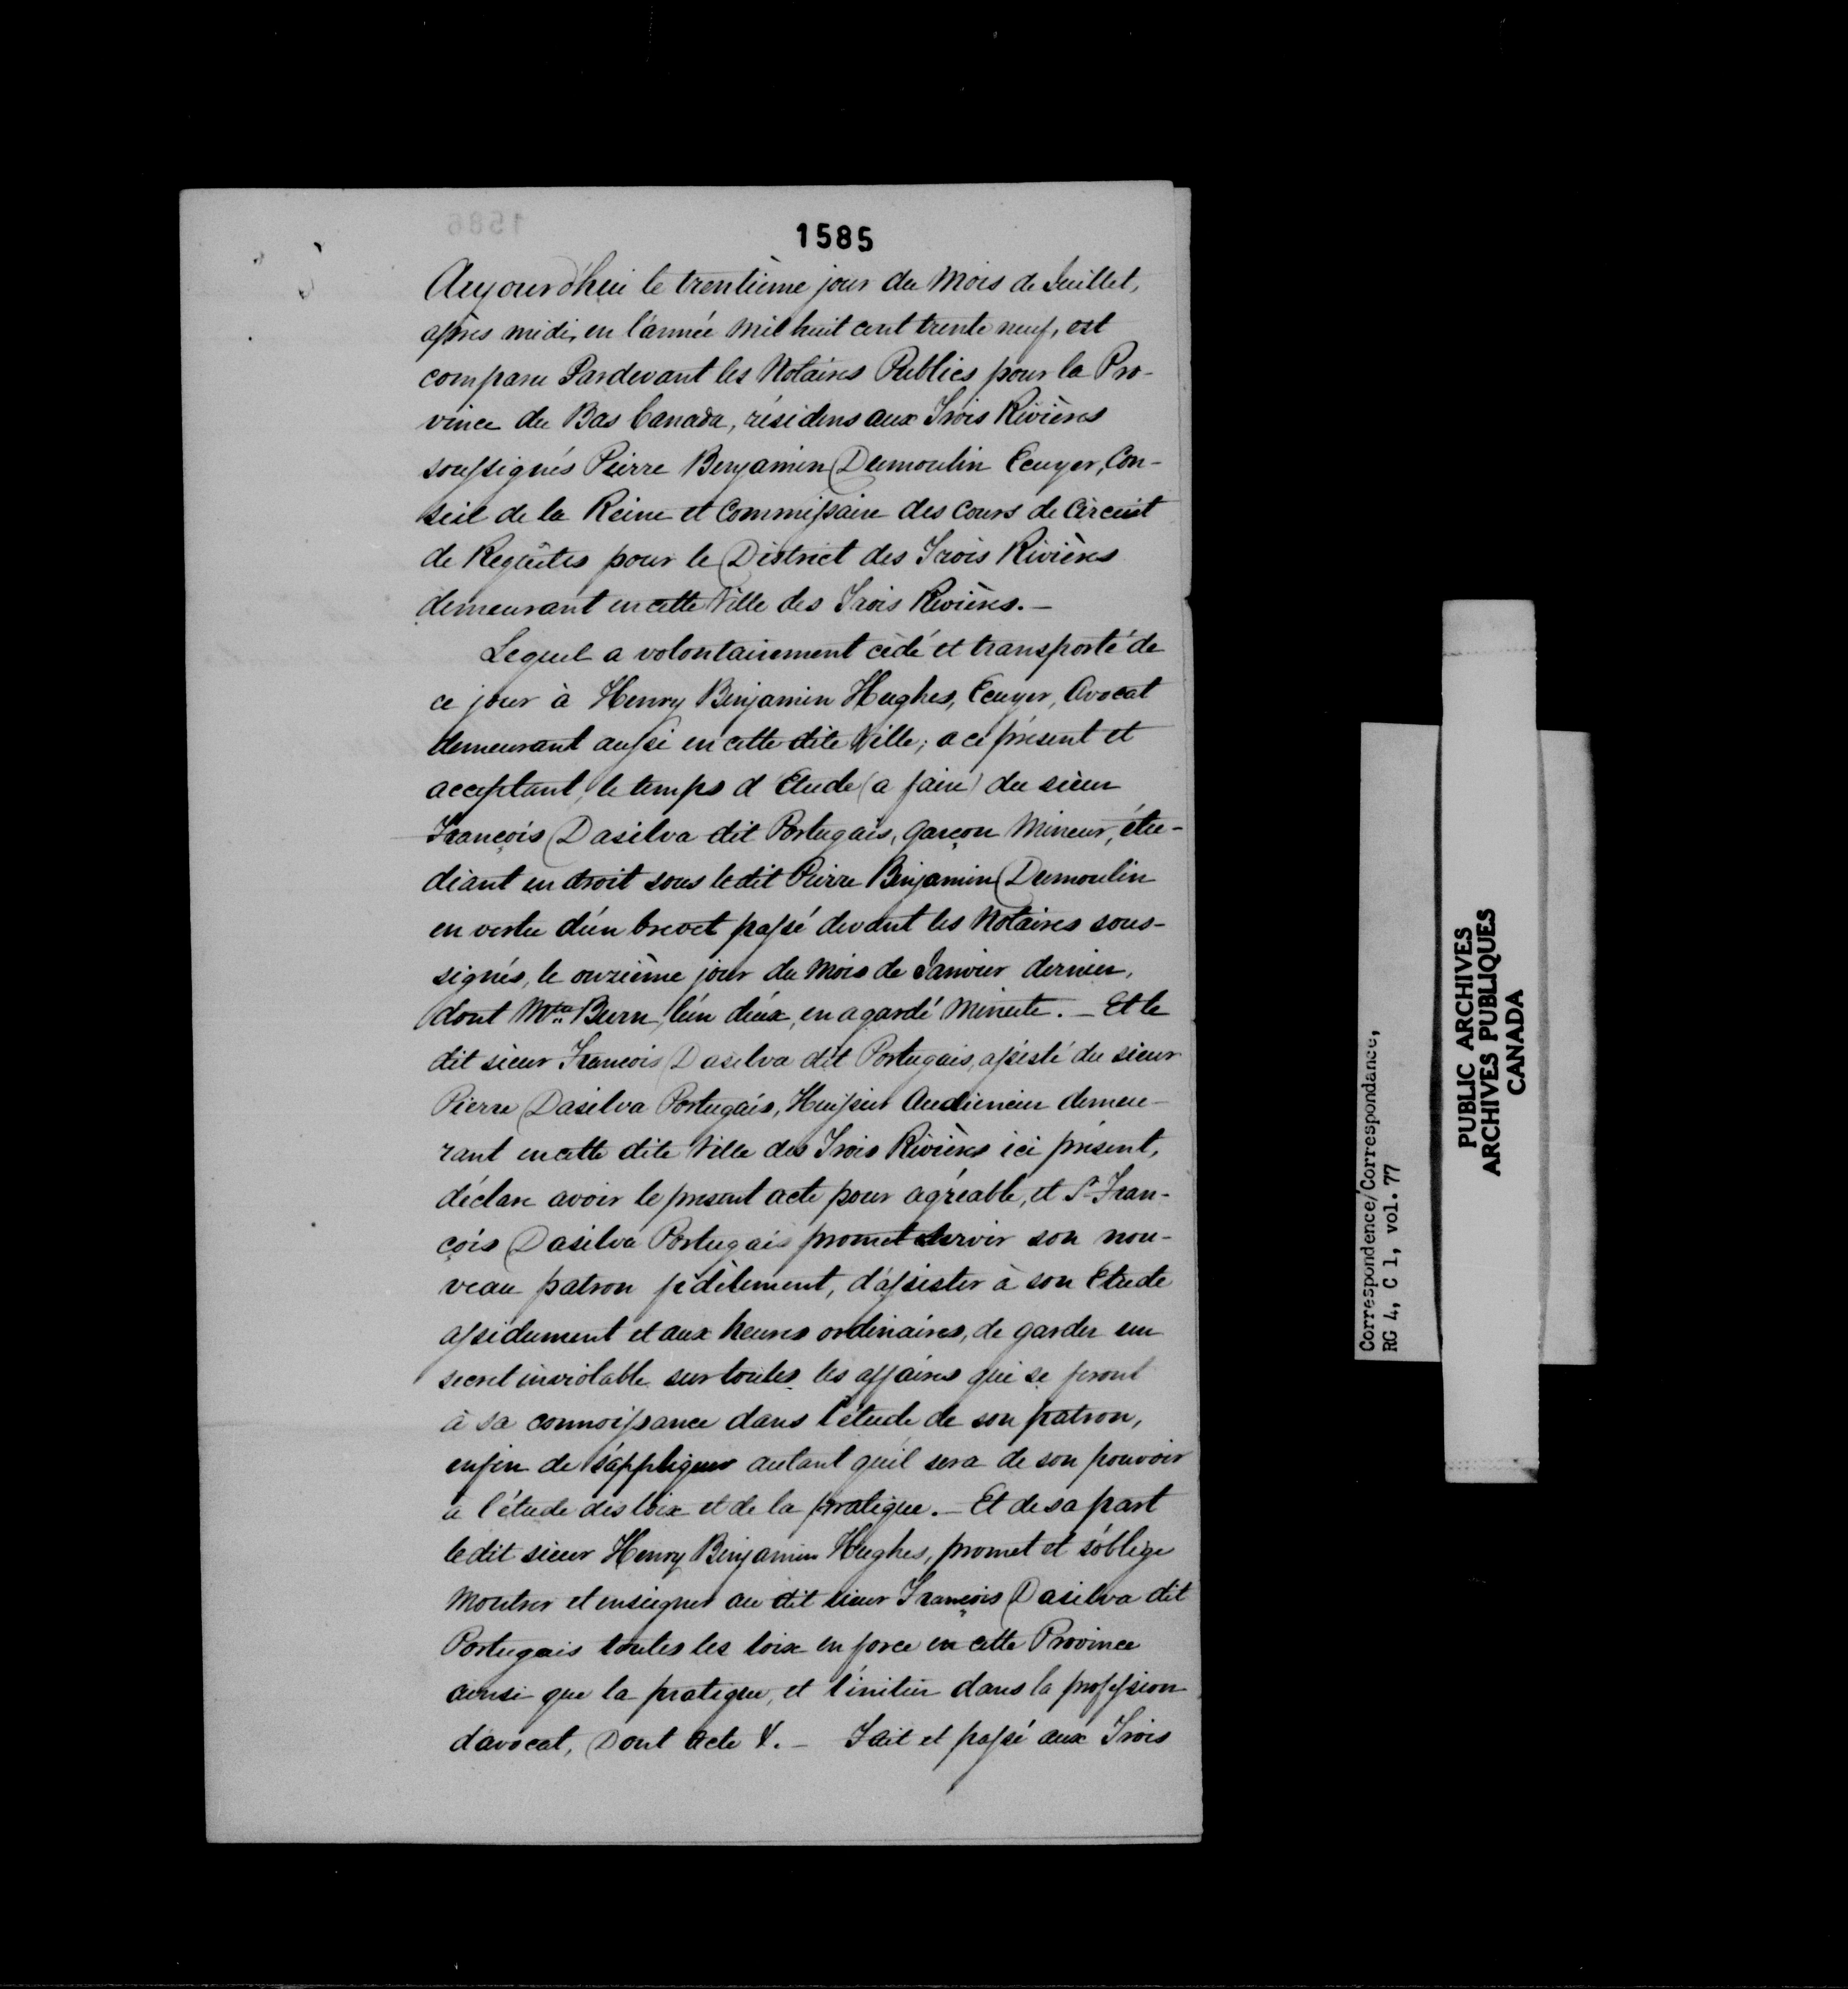 1585
Aujourd'hui le trentième jour du Mois de Juillet,
après midi, en l'année Mil huit cent trente neuf, est
comparu Pardevant les Notaires Publics pour la Pro-
vince du Bas Canada, résidens aux Trois Rivières
soussignés Pierre Benjamin Dumoulin Ecuyer, Con-
seil de la Reine et Commissaire des Cours de Circuit
de Requêtes pour le District des Trois Rivières
demeurant en cette Ville des Trois Rivières.—
Lequel a volontairement cédé et transporté de
ce jour à Henry Benjamin Hughes, Ecuyer, Avocat
demeurant aussi en cette dite Ville; a ce présent et
acceptant, le temps d'Etude (a faire) du sieur
François Dasilva dit Portugais, garçon Mineur, étu-
diant en droit sous le dit Pierre Benjamin Dumoulin
en vertu d'un brevet passé devant les Notaires sous-
signés, le onzième jour du Mois de Janvier dernier,
dont Mtre Burn, l'un d'eux, en a gardé Minute.— Et le
dit sieur François Dasilva dit Portugais, assisté du sieur
Pierre Dasilva Portugais, Huissier Audiencier demeu-
rant en cette dite Ville des Trois Rivières ici présent,
déclare avoir le présent acte pour agréable, et Sr Fran-
çois Dasilva Portugais promet servir son nou-
veau patron fidèlement, d'assister à son Etude
assidument et aux heures ordinaires, de garder un
secret inviolable sur toutes les affaires qui se feront
à sa connoissance dans l'étude de son patron,
enfin de s'appliquer autant qu'il sera de son pouvoir
a l'étude des loix et de la pratique.— Et de sa part
le dit sieur Henry Benjamin Hughes, promet et s'oblige
Montrer et enseigner au dit sieur François Dasilva dit
Portugais toutes les loix en force en cette Province
ainsi que la pratique, et l'initier dans la profession
d'avocat, Dont Acte &.— Fait et passé aux Trois
Correspondence/Correspondance,
RG 4, C 1, vol. 77
PUBLIC ARCHIVES
ARCHIVES PUBLIQUES
CANADA